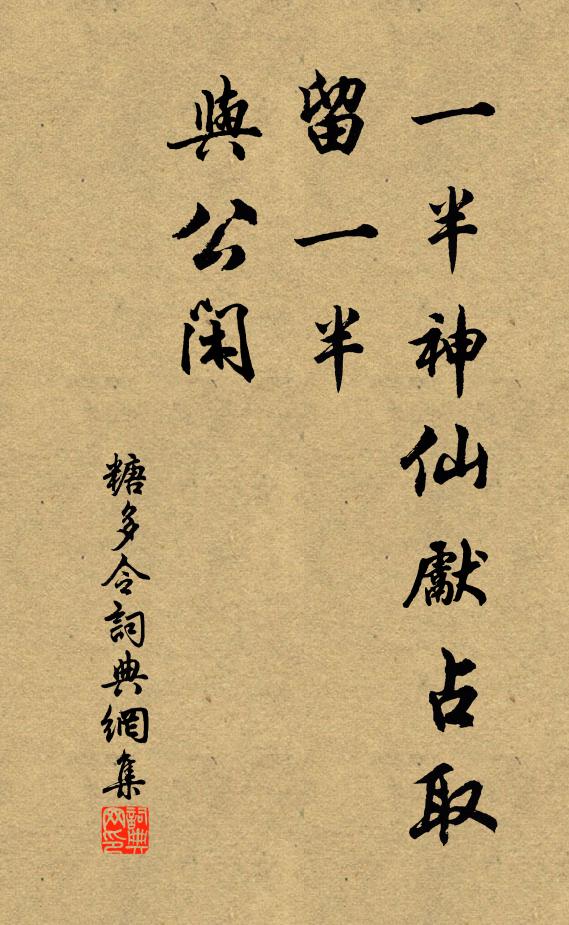 一半神仙獻占取
留一半
與公閑
糖多令詞典網集
詞典網印